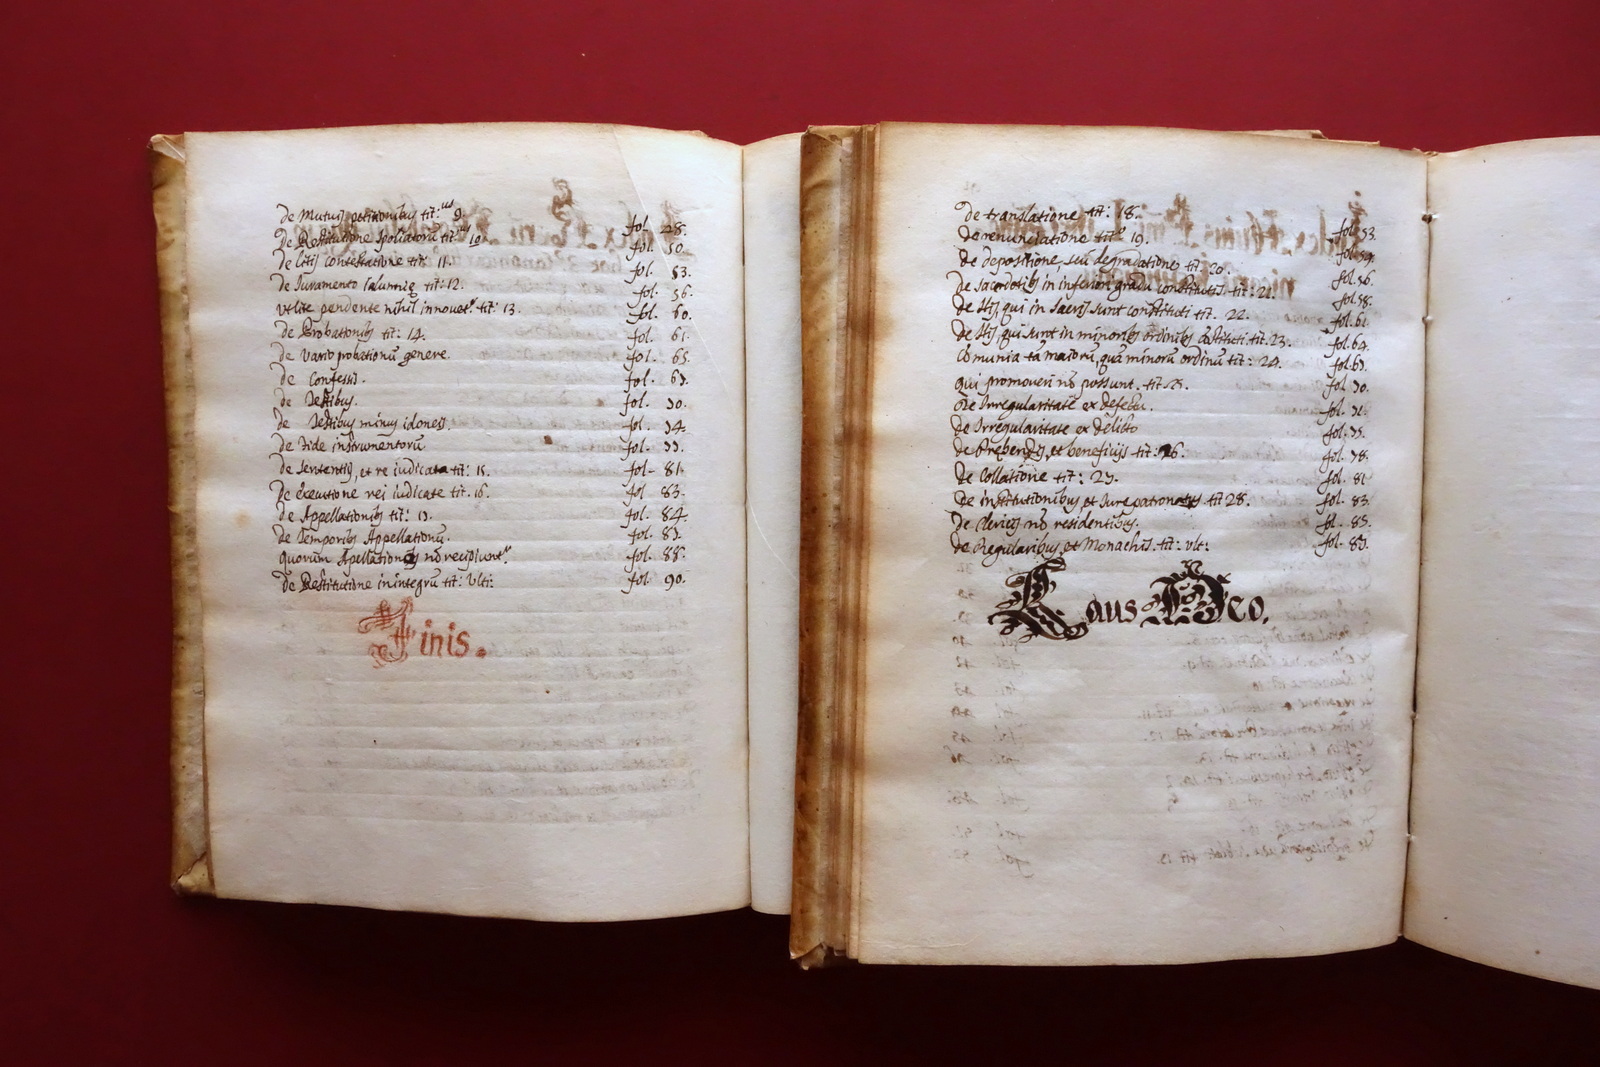 De Mutuis petitionibus tit:us 9. fol. 48.
De Restitutione Spoliatorũ tit:us 10. fol. 50.
De litis contestatione tit: 11. fol. 53.
De Iuramento Calumnię tit: 12. fol. 56.
ut lite pendente nihil innouetr. tit: 13. fol. 60.
De Probationibus tit: 14. fol. 61.
De Vario probationũ genere. fol. 65.
De Confessis. fol. 67.
De Testibus. fol. 70.
De Testibus minus idoneis. fol. 74.
De Fide instrumentorũ fol. 77.
De Sententijs, et re iudicata tit: 15. fol. 81.
De executione rei iudicate tit. 16. fol. 83.
De Appellationibus tit: 17. fol. 84.
De Temporibus Appellationũ. fol. 87.
quorum Apellationes nõ recipiuntr. fol. 88.
De Restitutione in integrũ tit: Ulti: fol. 90.
Finis.
De translatione tit: 18. fol. 53.
De renunciatione tito 19. fol.
De depositione, seu degradatione tit. 20. fol. 56.
De Sacerdotibus in inferiori gradu constitutis tit: 21. fol. 58.
De Iis, qui in Sacris sunt constituti tit. 22. fol. 61.
De Iis, qui sunt in minoribus ordinibus cõstituti. tit. 23. fol. 64.
Comunia tã maiorũ, quã minorũ ordinũ tit: 24. fol. 67.
qui promoueri nõ possunt. tit 25. fol. 70.
De Irregularitate ex defectu. fol. 71.
De Irregularitate ex delicto fol. 75.
De Prębendis, et beneficijs tit: 26. fol. 78.
De Collatione tit: 27. fol. 81
De institutionibus et Iure patronatus tit 28. fol. 83.
De Clericis nõ residentibus. fol. 85.
De Regularibus, et Monachis. tit: ult: fol. 87.
Laus Deo.